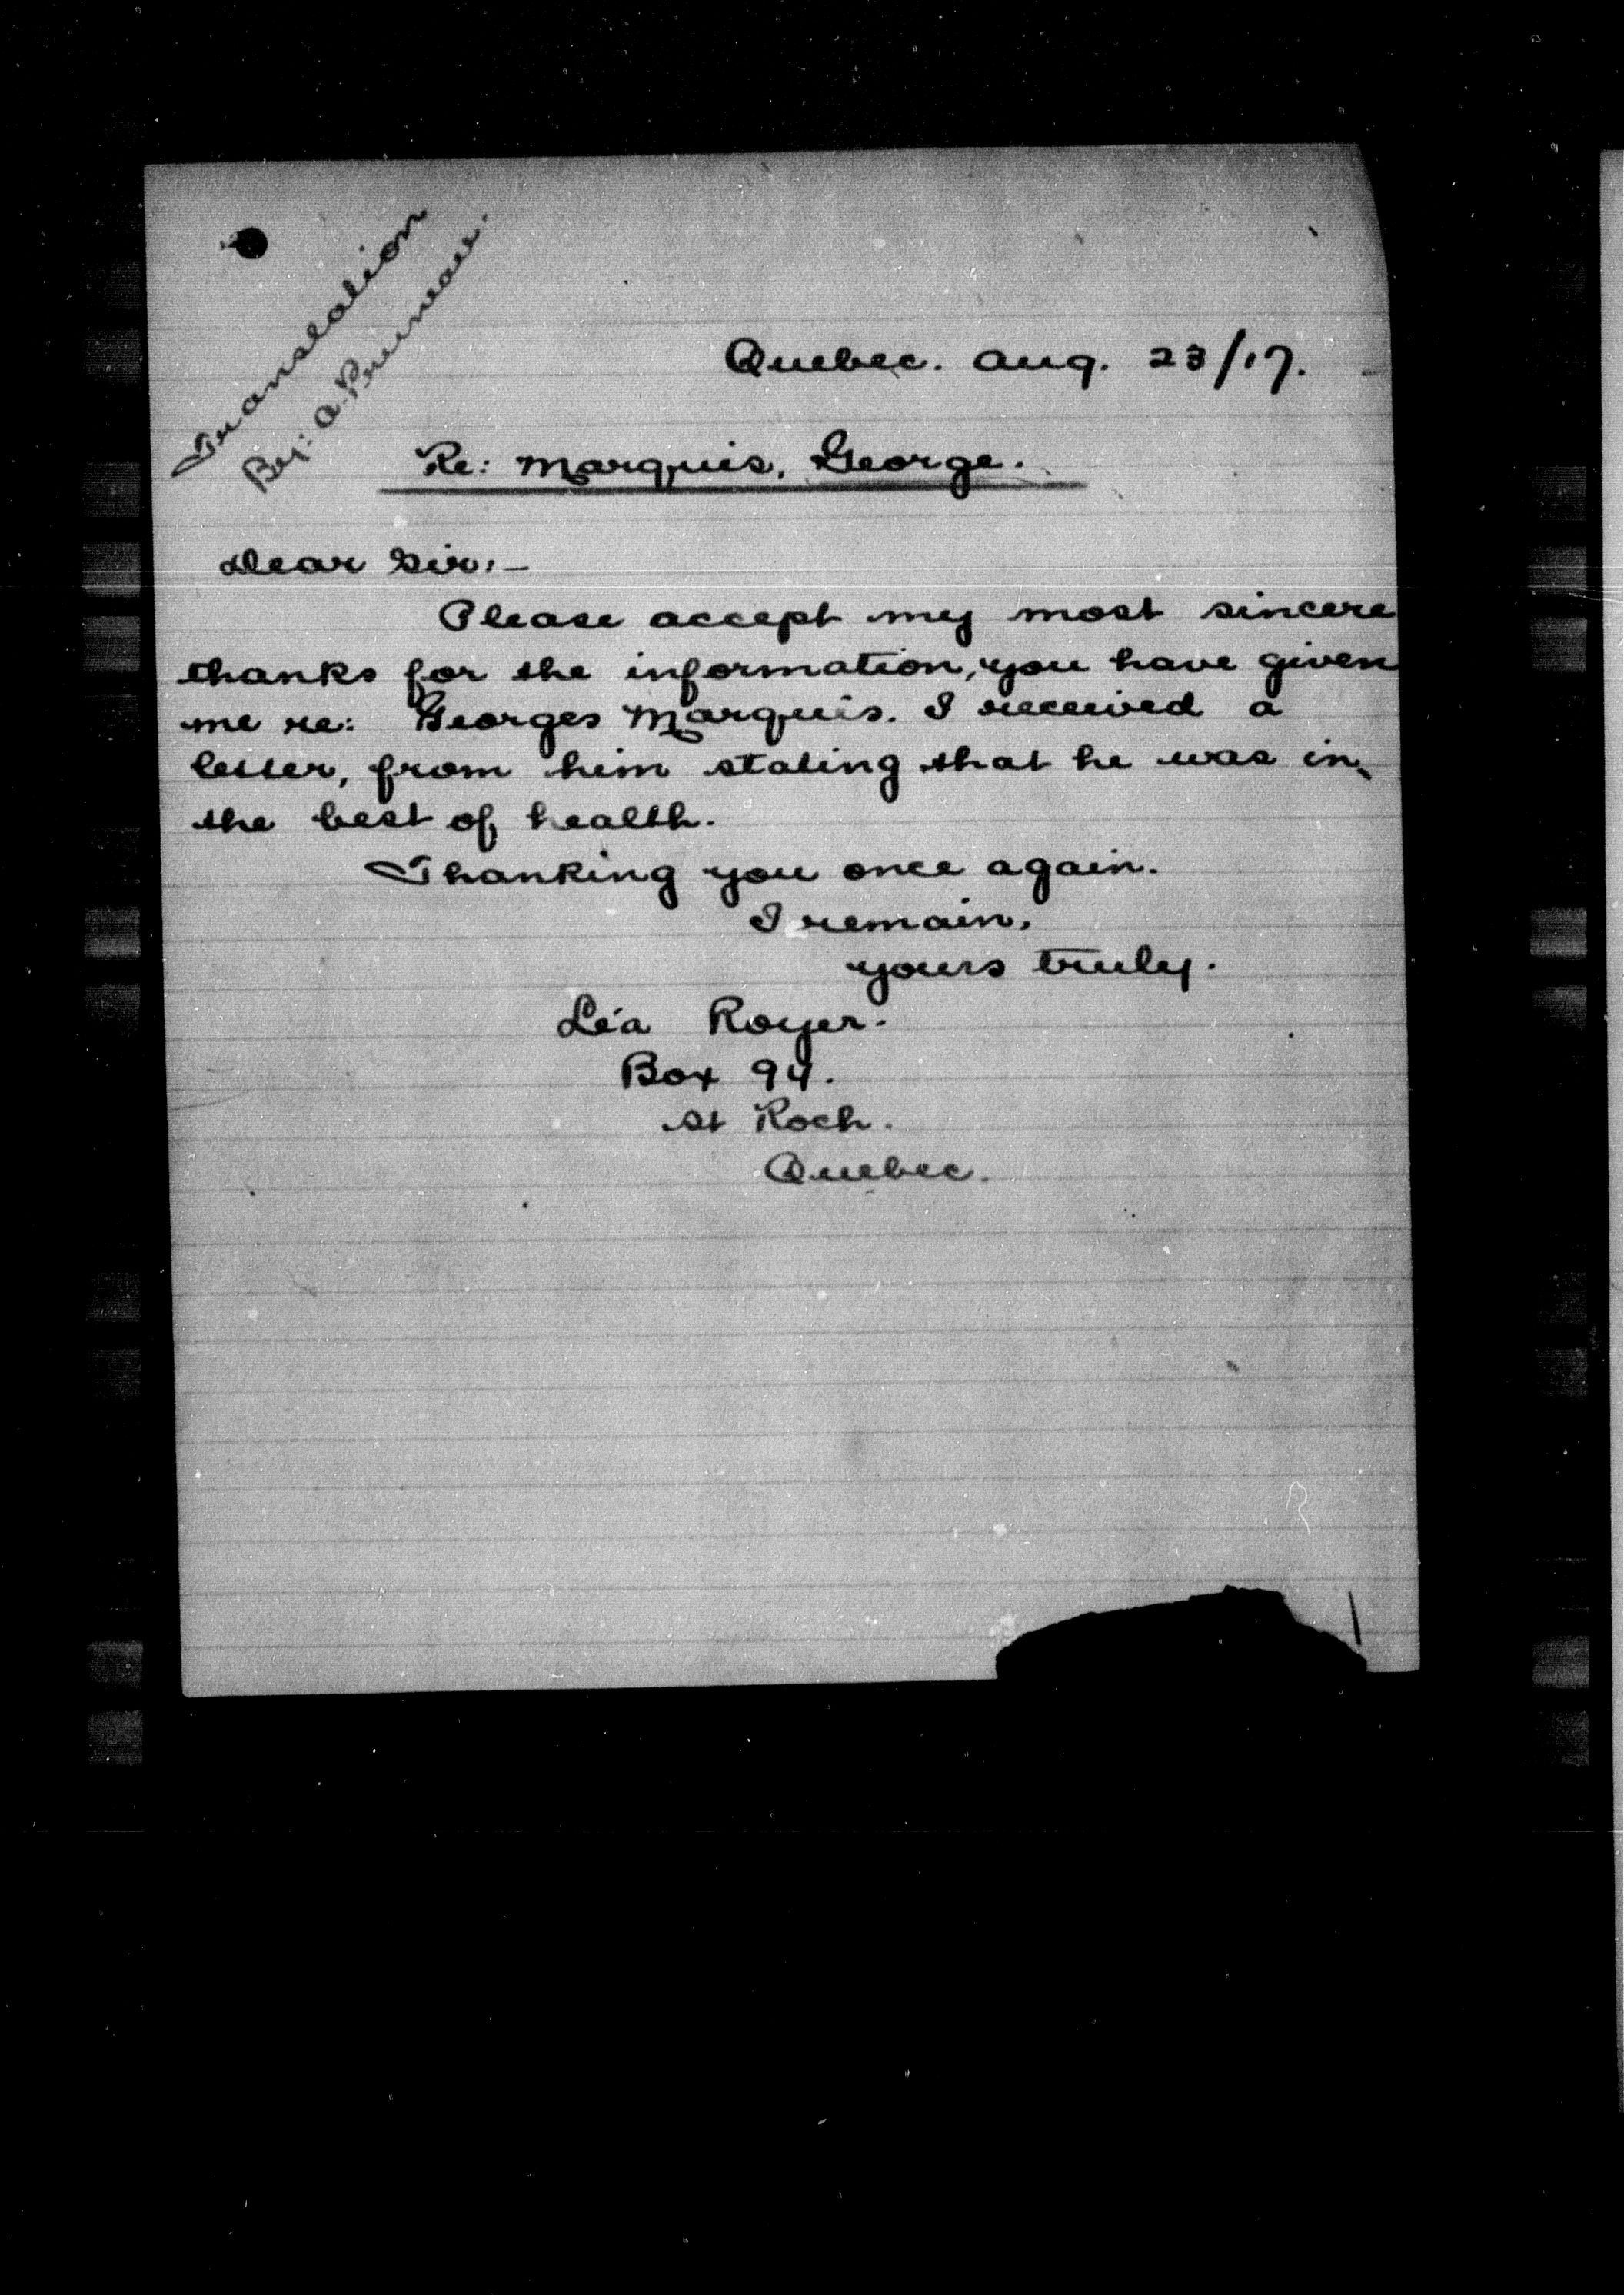 Translation
By: A. Pruneau.
Quebec. Aug. 23/17.
Re: Marquis, George.
Dear Sir:-
Please accept my most sincere
thanks for the information, you have given
me re: Georges Marquis. I received a
letter, from him stating that he was in
the best of health.
Thanking you once again.
I remain,
yours truly.
Léa Royer.
Box 94.
St Roch.
Quebec.